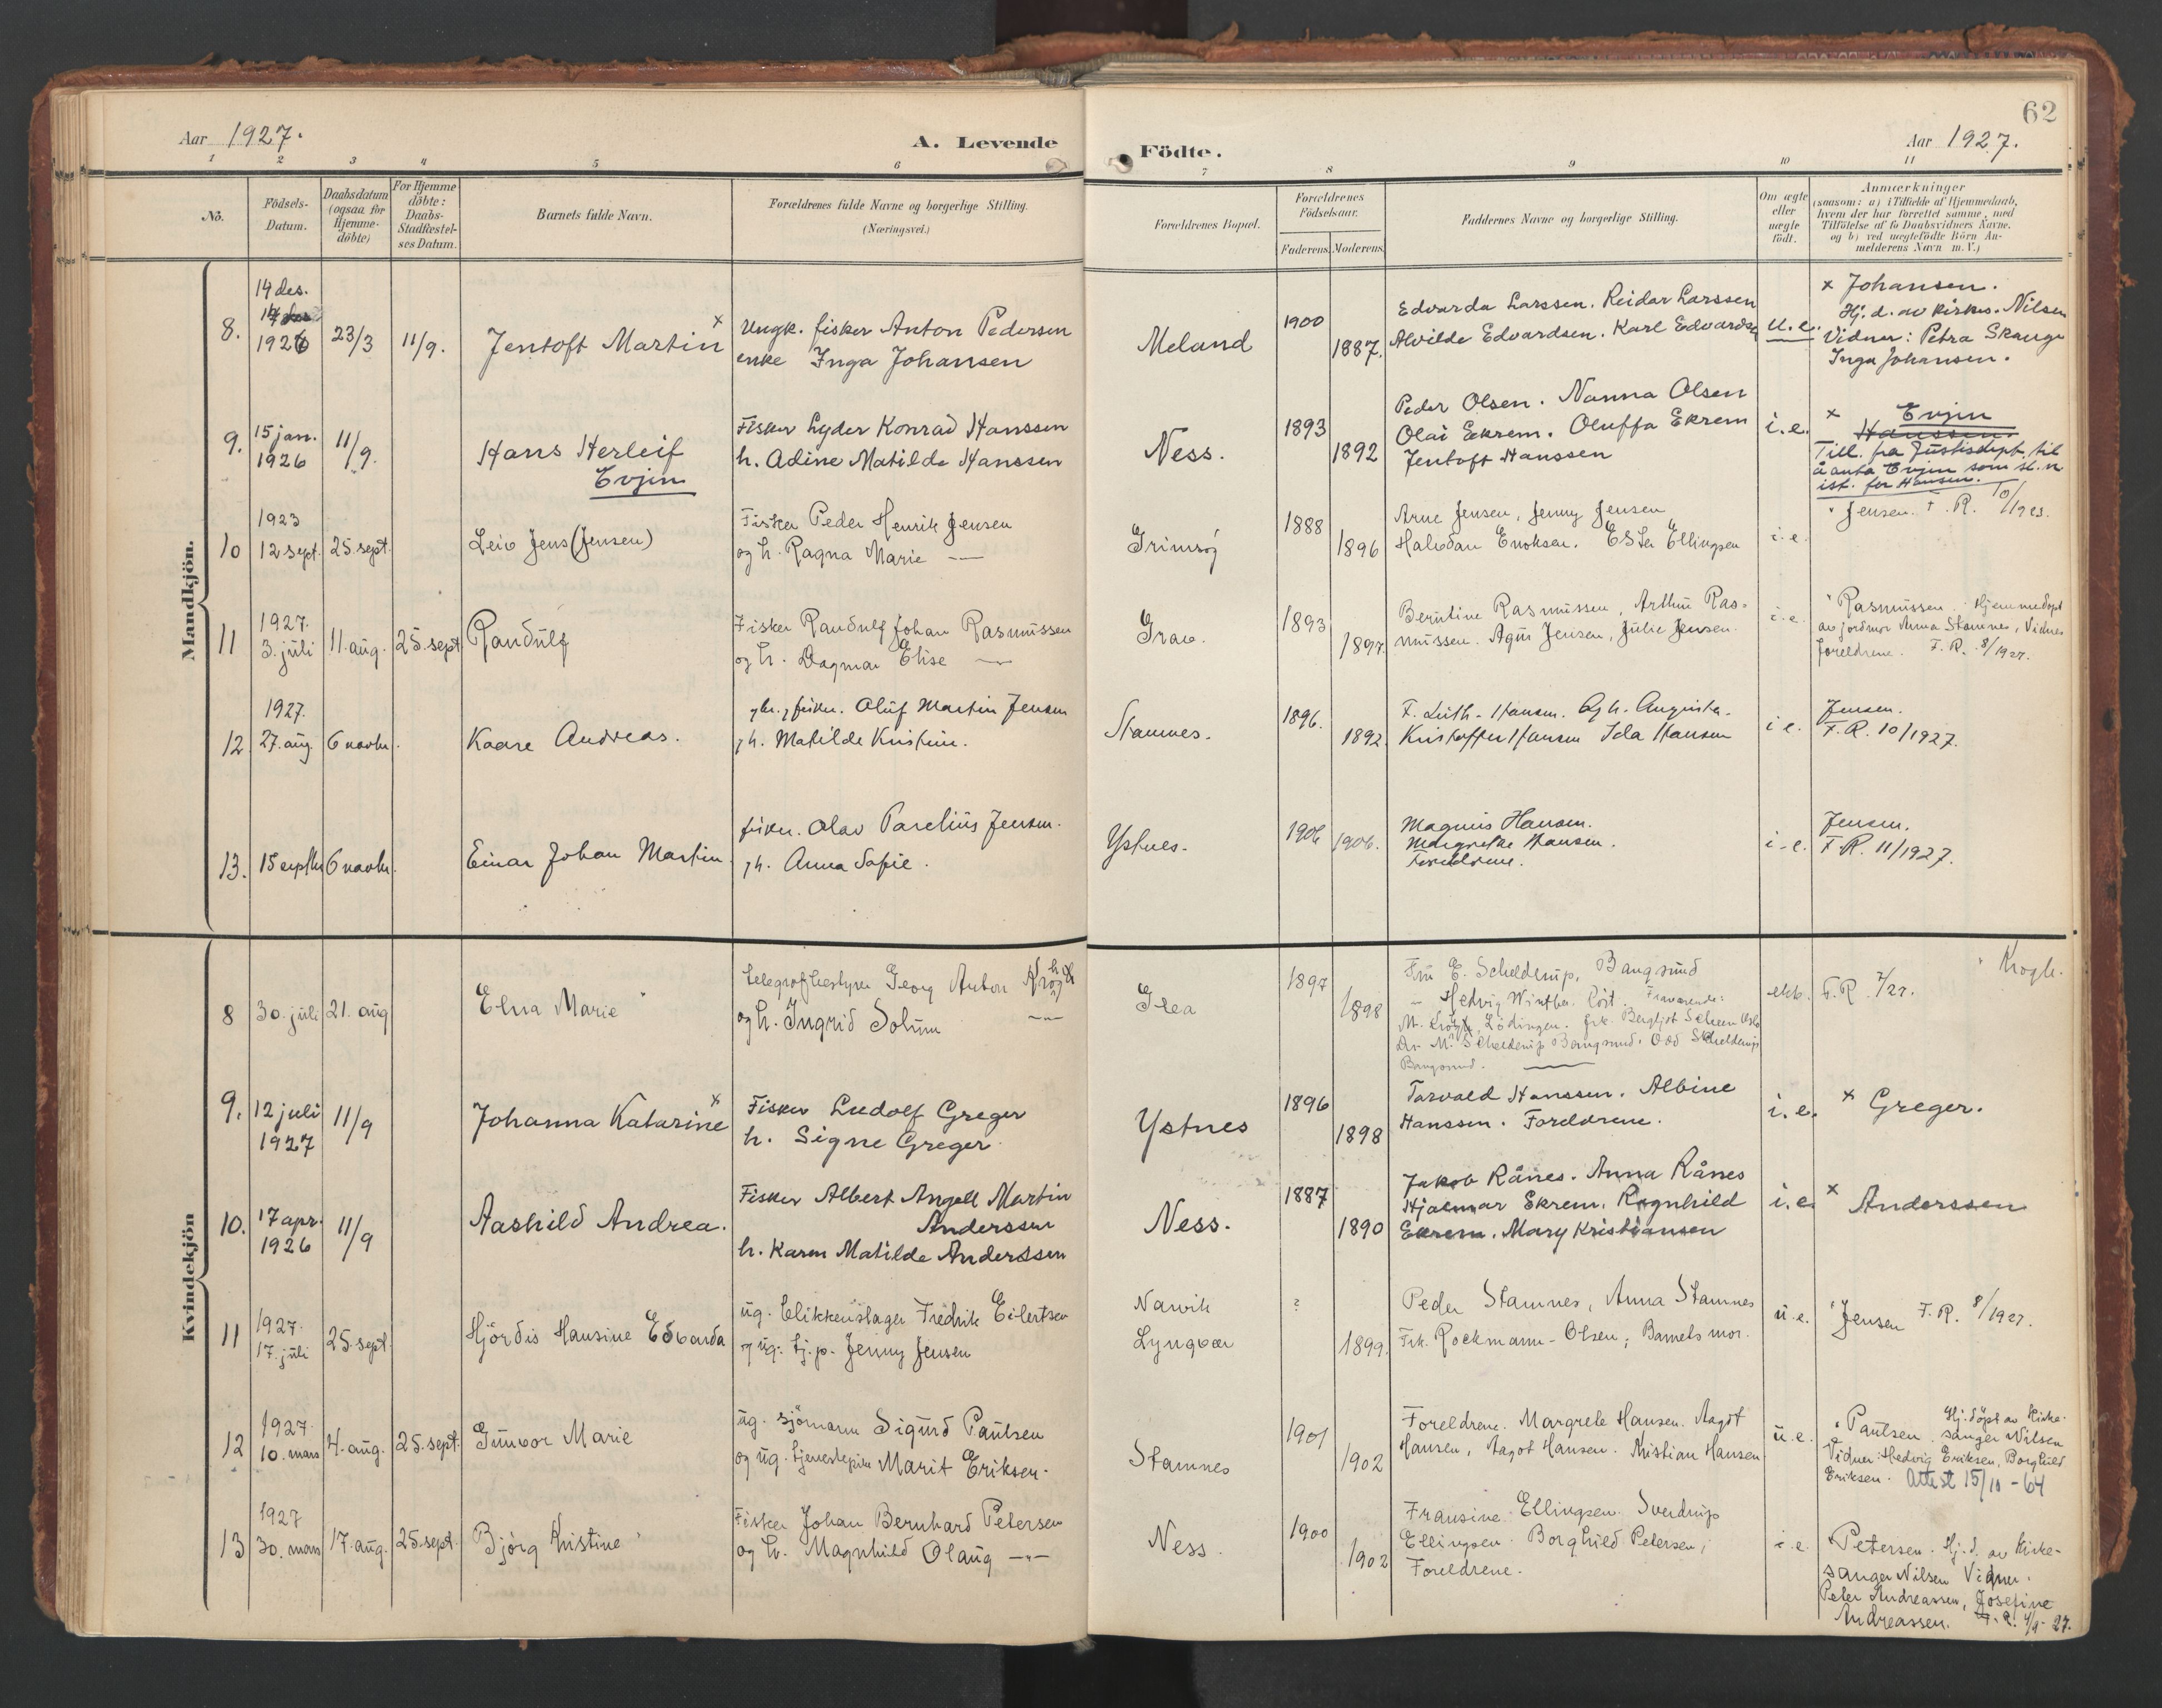 62
Aar 1927.
A. Levende
Födte.
Aar 1927.
1 2 3 4 5 6 7 8 9 10 11
No.
Födsels-
Datum.
Daabsdatum
(ogsaa for
Hjemme-
döbte)
For Hjemme
döbte:
Daabs-
Stadfæstel-
ses Datum.
Barnets fulde Navn.
Forældrenes fulde Navne og borgerlige Stilling.
(Næringsvei.)
Forældrenes Bopæl.
Forældrenes
Födselsaar.
Faderens. Moderens.
Faddernes Navne og borgerlige Stilling.
Om ægte
eller
uægte
födt.
Anmærkninger
(saasom: a) i Tilfælde af Hjemmedaab,
hvem der har forrettet samme, med
Tilföielse af to Daabsvidners Navne.
og b) ved uægtefödte Börn An-
melderens Navn m. V.)
Mandkjön.
8.
14 des.
1926
23/3
11/9.
Jentoft Martin x
Ungk. fisker Anton Pedersen
enke Inga Johansen
Meland
1900
1887.
Edvarda Larssen. Reidar Larssen
Alvilde Edvardsen. Karl Edvardsen
u.e.
x Johansen.
Hj. d. av kirkes. Nilsen
Vidner: Petra Skauge
Inga Johansen.
9.
15 jan.
1926
11/9.
Hans Herleif
Evjen
Fisker Lyder Konrad Hanssen
h. Adine Matilde Hanssen
Ness.
1893
1892
Peder Olsen. Nanna Olsen
Olai Ekrem. Oluffa Ekrem
Jentoft Hanssen
i.e.
x Evjen
Hanssen.
Till. fra Justisdept. til
å anta Evjen som sl.n
ist. for Hansen.
10
1923
12 sept.
25. sept.
Leiv Jens (Jensen)
Fisker Peder Henrik Jensen
og h. Ragna Marie —
Grimsöy
1888
1896
Arne Jensen, Jenny Jensen
Halvdan Enoksen. Ester Ellingsen
i.e.
Jensen. F. R.
11
1927.
3. juli
11. aug.
25. sept
Randulf
Fisker Randulf Johan Rasmussen
og h. Dagmar Elise —
Grav.
1893
1897.
Berntine Rasmussen, Arthur Ras-
mussen. Agus Jensen, Julie Jensen.
i.e.
Rasmussen. Hjemmedöpt
av jordmor Anna Stamnes, Vidner
foreldrene. F. R. 8/1927.
12
1927.
27. aug.
6 novbr.
Kaare Andreas.
gbr., fisker. Oluf Martin Jensen
, h. Matilde Kristine.
Stamnes.
1896.
1892
F. Luth-Hansen. Og h. Augusta.
Kristoffer Hansen Ida Hansen
i e.
Jensen.
F. R. 10/1927.
13.
15 septbr
6 novbr.
Einar Johan Martin
fisker. Olav Parelius Jensen.
, h. Anna Sofie.
Ystnes.
1906
1906.
Magnus Hansen.
Margrethe Hansen.
Foreldrene.
i-e.
Jensen.
F. R. 11/1927.
Kvindekjön
8
30. juli
21. aug
Elna Marie
telegrafbestyrer Georg Anton Krogh
og h. Ingrid Solum —
Glea
1897
1898
Fru E. Schelderup, Bangsund
" Hedvig Winther Röst. Fraværende:
M. Krogh, Lödingen. frk. Bergljot Scheen Oslo
Dr. M. Schelderup Bangsund. Odd Schelderup
Bangsund.
ekt.
F.R. 7/27.
Krogh.
9.
12 juli
1927
11/9
Johanna Katarine x
Fisker Ludolf Greger
h. Signe Greger
Ystnes
1896
1898
Torvald Hanssen. Albine
Hanssen. Foreldrene.
i.e.
x Greger.
10.
17 apr.
1926
11/9
Aashild Andrea.
Fisker Albert Angell Martin
Anderssen
h. Karen Matilde Anderssen
Ness.
1887
1890
Jakob Rånes. Anna Rånes
Hjalmar Ekrem. Ragnhild
Ekrem. Mary Kristiansen
i.e.
x Anderssen
11
1927.
17. juli
25. sept.
Hjördis Hansine Edvarda
ug. blikkenslager Fredrik Eilertsen
og ug. tj.p. Jenny Jensen
Narvik
Lyngvær
?
1899.
Peder Stamnes, Anna Stamnes
Frk. Rockmann-Olsen; Barnets mor.
u.e.
Jensen F. R. 8/1927.
12
1927.
10. mars
4. aug.
25. sept.
Gunvor Marie
ug. sjömann Sigurd Paulsen
og ug. tjenestepike Marit Eriksen.
Stamnes
1901
1902
Foreldrene. Margrete Hansen. Aagot
Hansen, Aagot Hansen. Kristian Hansen
u.e.
Paulsen. Hj. döpt av Kirke-
sanger Nilsen
Vidner: Hedvig Eriksen, Borghild
Eriksen. Attest 15/10-64
13
1927
30. mars
17. aug.
25. sept.
Björg Kristine
Fisker Johan Bernhard Petersen
og h. Magnhild Olaug —"—
Ness.
1900
1902
Fransine Ellingsen. Sverdrup
Ellingsen. Borghild Petersen,
Foreldrene.
i.e.
Petersen. Hj. d. av Kirke-
sanger Nilsen Vidner.
Peter Andreassen, Josefine
Andreassen. F. R. 4/9-27.